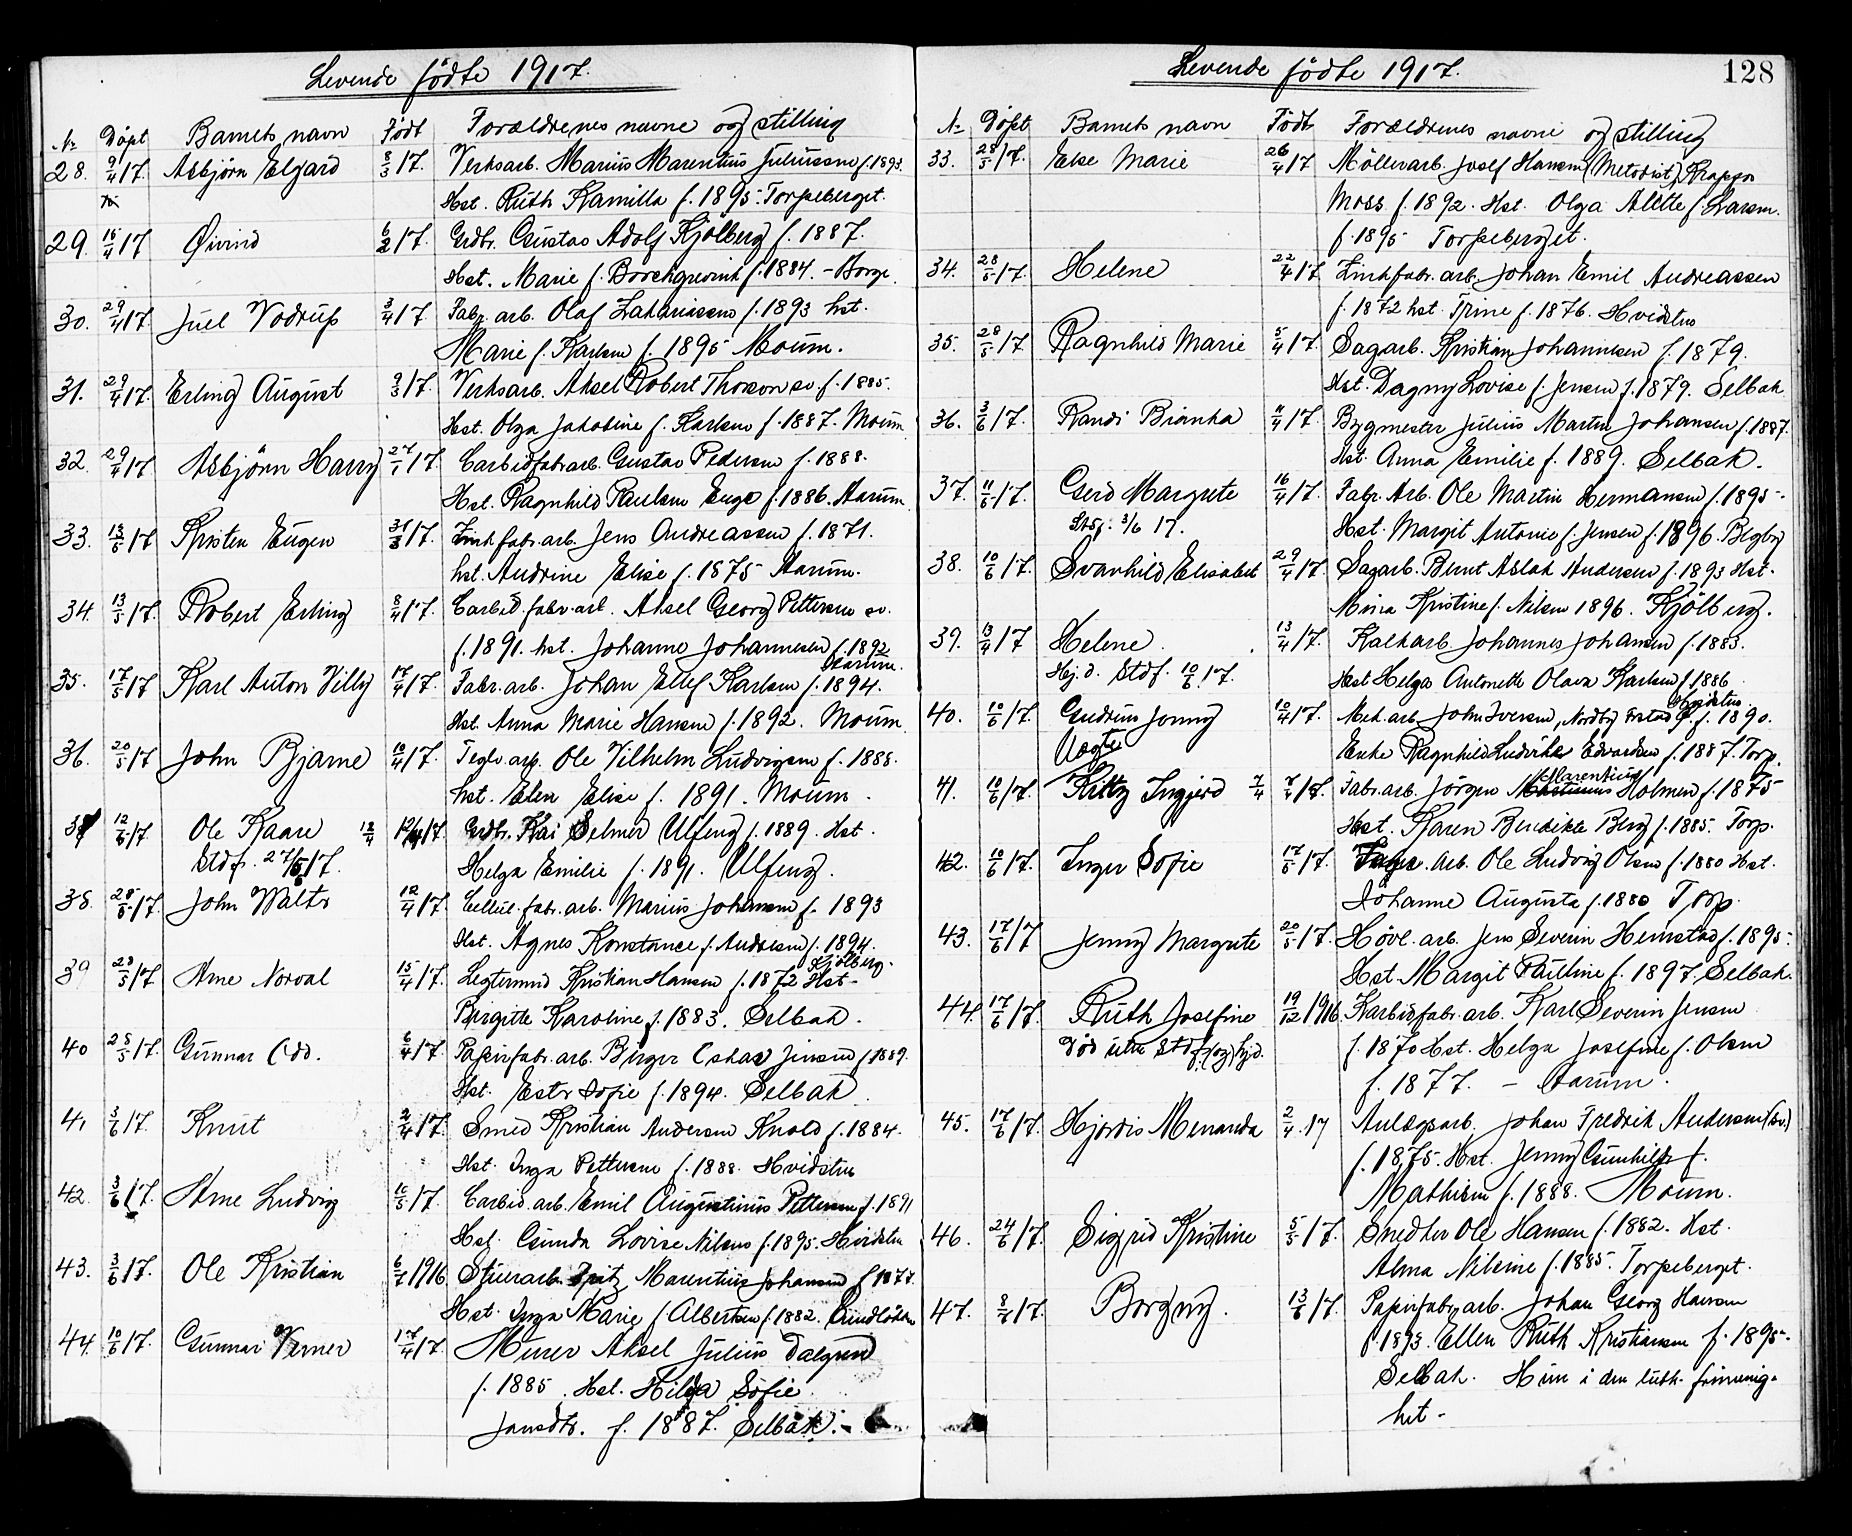 Levende födte 1917.
№ Döpt Barnets navn Födt Forældrenes navne og stilling
28. 9/4 17. Asbjörn Elgard 8/3 17. Verksarb. Marius Marentius Juliussen f. 1893.
Hst. Ruth Kamilla f. 1895. Torpeberget.
29. 15/4 17 Øivind 6/2 17. Grdbr. Gustav Adolf Kjölberg f. 1887.
Hst. Marie f. Borchgrevink f. 1884. - Borge.
30. 29/4 17 Juel Vodrup 3/4 17. Fabr. arb. Olaf Zakariassen f. 1893 hst.
Marie f. Karlsen f. 1895 Moum.
31. 29/4 17. Erling August 9/3 17. Verksarb. Aksel Robert Thoreson sv. f. 1885.
Hst. Olga Jakobine f. Karlsen f. 1887. Moum
32. 29/4 17. Asbjörn Harry 27/1 17. Carbidfabr.arb. Gustav Pedersen f. 1888.
Hst. Ragnhild Paulsen Enge f. 1886. Aarum
33. 13/5 17 Kristen Eugen 31/3 17. Zinkfabr.arb. Jens Andreassen f. 1871.
hst. Andrine Elise f. 1875 Aarum.
34. 13/5 17. Robert Erling 8/4 17. Carbid.fabr.arb. Aksel Georg Pettersen sv.
f. 1891. hst. Johanne Johannesen f. 1892
Aarum.
35. 17/5 17 Karl Anton Villy 17/4 17. Fabr.arb. Johan Ellef Karlsen f. 1894.
Hst. Anna Marie Hansen f. 1892. Moum
36. 20/5 17 John Bjarne 10/4 17. Teglv.arb. Ole Vilhelm Ludvigsen f. 1888.
hst. Elen Elise f. 1891. Moum.
37 12/6 17 Ole Kaare 12/4 17. Grdbr. Kai Selmer Ulfeng f. 1889. Hst.
Stdf. 27/5 17. Helga Emilie f. 1891. Ulfeng.
38. 28/5 17. John Walter 12/4 17. Cellul. fabr. arb. Marius Johansen f. 1893
Hst. Agnes Konstance f. Andersen f. 1894.
Kjölberg.
39 28/5 17 Arne Norval 15/4 17. Legtermand Kristian Hansen f. 1872 Hst-
Birgitte Karoline f. 1883. Selbak.
40 28/5 17. Gunnar Odd. 6/4 17 Papirfabr.arb. Birger Oskar Jensen f. 1889.
Hst. Ester Sofie f. 1894. Selbak.
41 3/6 17. Knut 2/4 17. Smed Kristian Andersen Knold f. 1884.
Hst. Inga Pettersen f. 1888. Hvidsten
42 3/6 17. Arne Ludvig 15/5 17. Carbid.arb. Emil Augustinius Pettersen f. 1891
Hst. Gunda Lovise Nilsen f. 1895. Hvidsten
43. 3/6 17. Ole Kristian 1916 Stuerarb. Fritz Marentius Johansen f. 1877.
Hst. Inga Marie f. Albertsen f. 1882.
44. 10/6 17. Gunnar Verner 17/4 17. Murer Aksel Julius Dalgren
f. 1885. Hst. Hilda Sofie
Jansdtr. f. 1887. Selbak.
Levende födte 1917. 128
№ Döpt Barnets navn Födt Forældrenes navne og stilling
33. 28/5 17. Else Marie 26/4 17 Möllerarb. Josef Hansen (Metodist), Krapfos
Moss f. 1892. Hst. Olga Alette f. Larsen.
f. 1895 Torpeberget.
34. 28/5 17. Helene 22/4 17 Zinkfabr. arb. Johan Emil Andreassen
f. 1872 hst. Trine f. 1876. Hvidsten
35. 28/5 17 Ragnhild Marie 5/4 17. Sagarb. Kristian Johannesen f. 1879.
Hst. Dagny Lovise f. Jensen f. 1879. Selbak
36. 3/6 17. Randi Bianka 11/4 17. Bygmester Julius Martin Johansen f. 1887.
Hst. Anna Emilie f. 1889. Selbak.
37. 11/6 17. Gerd Margrete 16/4 17. Fabr. Arb. Ole Martin Hermansen f. 1895-
Stdf. 3/6 17. Hst. Margit Antonie f. Jensen f. 1896. Begby
38. 10/6 17. Svanhild Elisabet 29/4 17. Sagarb. Bernt Aslak Andersen f. 1893 Hst.
Mina Kristine f. Nilsen 1896. Kjölberg.
39. 13/4 17 Helene. 13/4 17. Kalkarb Johannes Johansen f. 1883.
Hj. d. Stdf. 10/6 17. Hst Helga Antonette Olava Karlsen f. 1886
Hvidsten
40. 10/6 17. Gudrun Jonny 10/4 17. Mek. arb John Iversen, Nordby f. 1890.
Aagte Enke Ragnhild Ludvikke Edvardsen f. 1887. Torp.
41. 10/6 17. Kitty Ingjerd 7/4 7/4 17. Fabr.arb. Jörgen Marentius Holmen f. 1875
Hst. Karen Benedikte Berg f. 1885. Torp.
42. 10/6 17. Inger Sofie 17/5 17. arb. Ole Ludvig Olsen f. 1880 Hst.
Johanne Augusta f. 1880 Torp.
43. 17/6 17 Jenny Margrete 20/5 17. Hövl. arb. Jens Severin Hemstad f. 1895.
Hst. Margit Pauline f. 1897. Selbak.
44. 17/6 17. Ruth Josefine 19/12 1916. Karbidfabr. arb. Karl Severin Jensen
Död uten stdf. (og) hjd. f. 1870 Hst. Helga Josefine f. Olsen
f. 1877. - Aarum.
45. 17/6 17. Hjördis Menanda 2/4 17 Anlægsarb. Johan Fredrik Andersen (sv.)
f. 1875. Hst. Jenny Gunhild f.
Mathisen f. 1888. Moum.
46. 24/6 17. Sigrid Kristine 5/5 17. Snedker Ole Hansen f. 1882. Hst.
Alma Nilsine f. 1885. Torpeberget.
47. 8/7 17. Borgny. 13/6 17. Papirfabr.arb. Johan Georg Hansen
f. 1893. Ellen Ruth Kristiansen f. 1895-
Selbak. Hun i den luth. frimenig-
het -